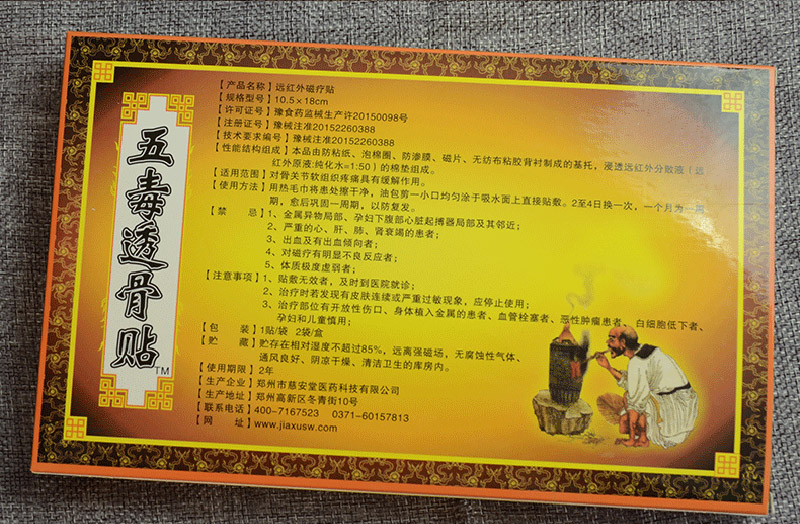 五毒透骨贴
TM
【产品名称】远红外磁疗贴
【规格型号】10.5×18cm
【许可证号】豫食药监械生产许20150098号
【注册证号】豫械注准20152260388
【技术要求编号】豫械注准20152260388
【性能结构组成】本品由防粘纸、泡棉圈、防渗膜、磁片、无纺布粘胶背衬制成的基托，浸透远红外分散液（远
红外原液:纯化水=1:50）的棉垫组成。
【适用范围】对骨关节软组织疼痛具有缓解作用。
【使用方法】用热毛巾将患处擦干净，油包剪一小口均匀涂于吸水面上直接贴敷。2至4日换一次，一个月为一周
期。愈后巩固一周期，以防复发。
【禁 忌】1、金属异物局部、孕妇下腹部心脏起搏器局部及其邻近；
2、严重的心、肝、肺、肾衰竭的患者；
3、出血及有出血倾向者；
4、对磁疗有明显不良反应者；
5、体质极度虚弱者；
【注意事项】1、贴敷无效者，及时到医院就诊；
2、治疗时若发现有皮肤连续或严重过敏现象，应停止使用；
3、治疗部位有开放性伤口、身体植入金属的患者、血管栓塞者、恶性肿瘤患者、白细胞低下者、
孕妇和儿童慎用；
【包 装】1贴/袋 2袋/盒
【贮 藏】贮存在相对湿度不超过85%，远离强磁场，无腐蚀性气体、
通风良好、阴凉干燥、清洁卫生的库房内。
【使用期限】2年
【生产企业】郑州市慈安堂医药科技有限公司
【生产地址】郑州高新区冬青街10号
【联系电话】400-7167523 0371-60157813
【网 址】www.jiaxusw.com